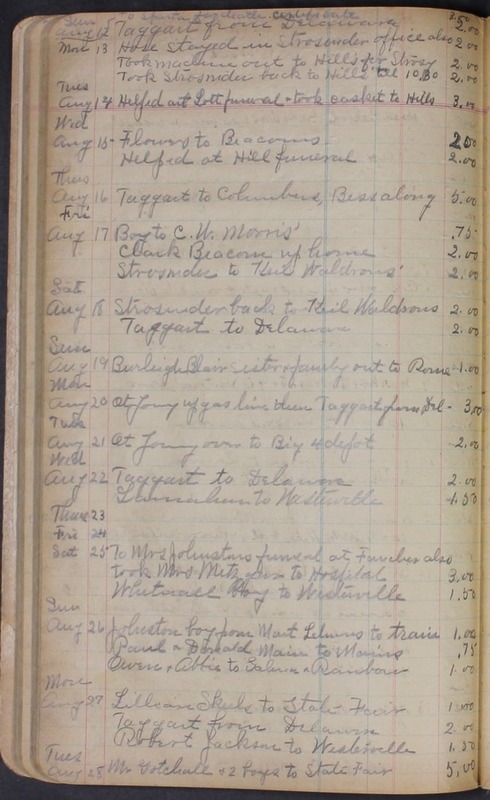 Sun to Sparta certificate 3.50
Aug 12 Taggart from Delaware 2.00
Mon 13 Hose stayed in Strosnider office also 2.00
Took machine out to Hill's for Strosy 2.00
Took Strosnider back to Hills' till 10,30 2.00
Tues
Aug 14 Helped at Lott funeral & took casket to Hills 3.00
Wed
Aug 15 Flowers to Beacoms 2.50
Helped at Hill funeral 2.00
Thurs
Aug 16 Taggart to Columbus, Bess along 5.00
Fri
Aug 17 Boy to C. W. Morris' .75
Clark Beacom up home 2.00
Strosnider to Keil Waldrons' 2.00
Sat
Aug 18 Strosnider back to Keil Waldrons 2.00
Taggart to Delaware 2.00
Sun
Aug 19 Burleigh Blair sister & family out to Rome 1.00
Mon
Aug 20 up gas line then Taggart from Del - 3.00
Tues
Aug 21 over to Big 4 depot 2.00
Wed
Aug 22 Taggart to Delaware 2.00
to Westerville 1.50
Thurs 23
Fri 24
Sat 25 To Mrs Johnstons funeral at also
took Mrs Metz to Hospital 3.00
Whitmase Boy to Westerville 1.50
Sun
Aug 26 Johnston boy from Mart Lehmans to train 1.00
Paul & Donald Main to Mains .75
Owen & Abbie to Galena & Rainbow 1.00
Mon
Aug 27 Lillian Skeels to State Fair 1.00
Taggart from Delaware 2.00
Robert Jackson to Westerville 1.50
Tues
Aug 28 Mr Gotchall & 2 boys to State Fair 5.00